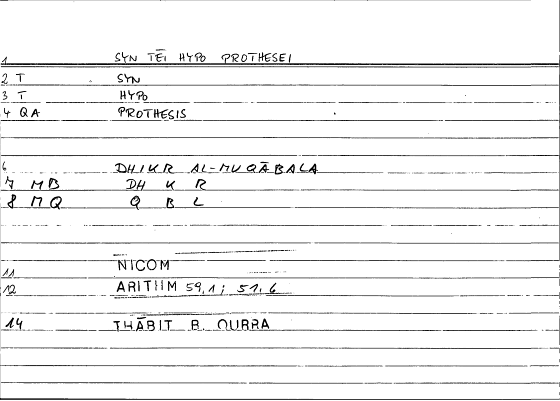 1 SYN TĒI HYPO PROTHESEI
2 T SYN
3 T HYPO
4 QA PROTHESIS
6 DHIKR AL-MUQĀBALA
7 MB DH K R
8 MQ Q B L
11 NICOM
12 ARITHM 59,1; 51,6
14 THĀBIT B. QURRA